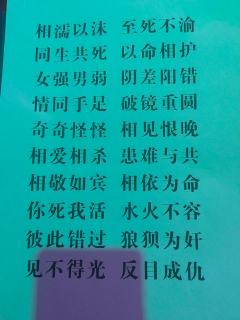 相濡以沫 至死不渝
同生共死 以命相护
女强男弱 阴差阳错
情同手足 破镜重圆
奇奇怪怪 相见恨晚
相爱相杀 患难与共
相敬如宾 相依为命
你死我活 水火不容
彼此错过 狼狈为奸
见不得光 反目成仇